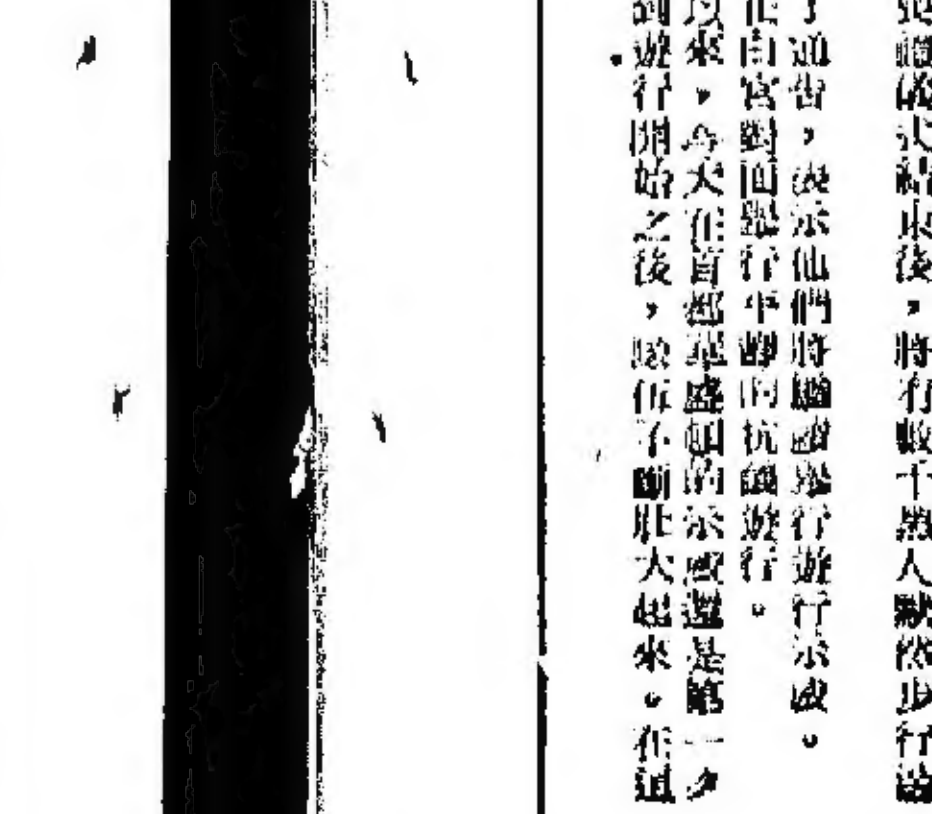 儀式結束後，將有數千黑人默然步行
了通告，表示他們將繼續舉行遊行示威。
白宮對面舉行平靜的抗議遊行。
以來，今天在首都華盛頓的示威還是第一步
到遊行開始之後，隊伍不斷壯大起來。在這